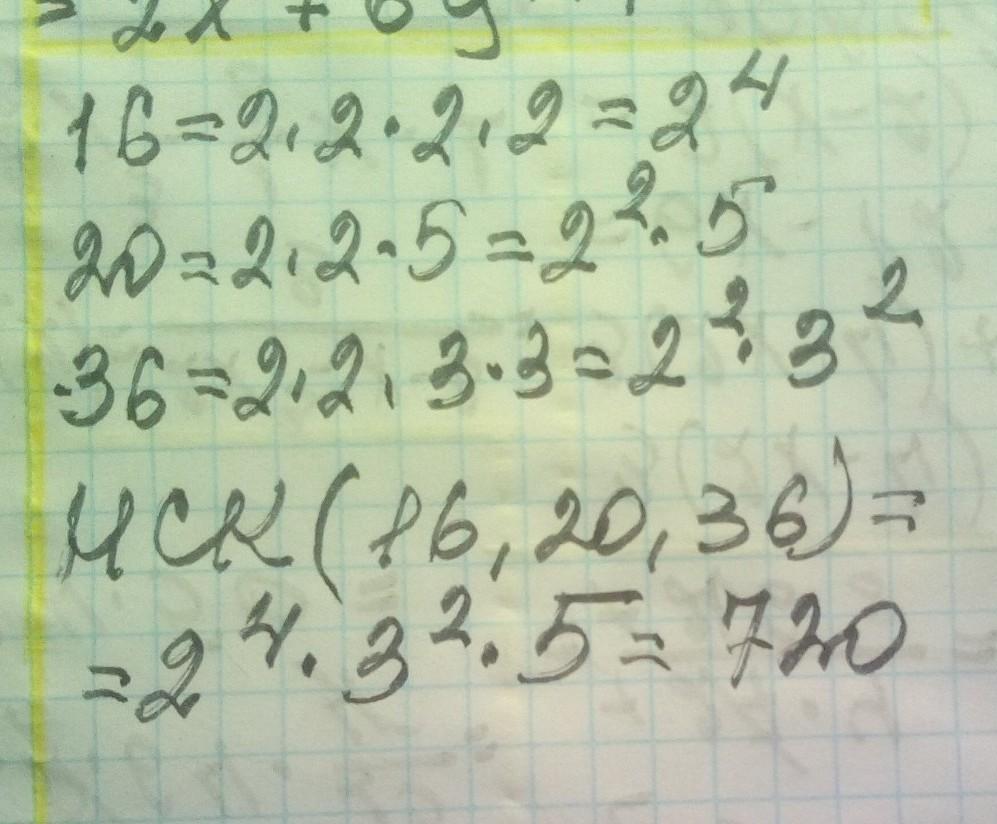 = 2x + 6y
16=2·2·2·2=2⁴
20=2·2·5=2²·5
36=2·2·3·3=2²·3²
НСК(16,20,36)=
=2⁴·3²·5=720